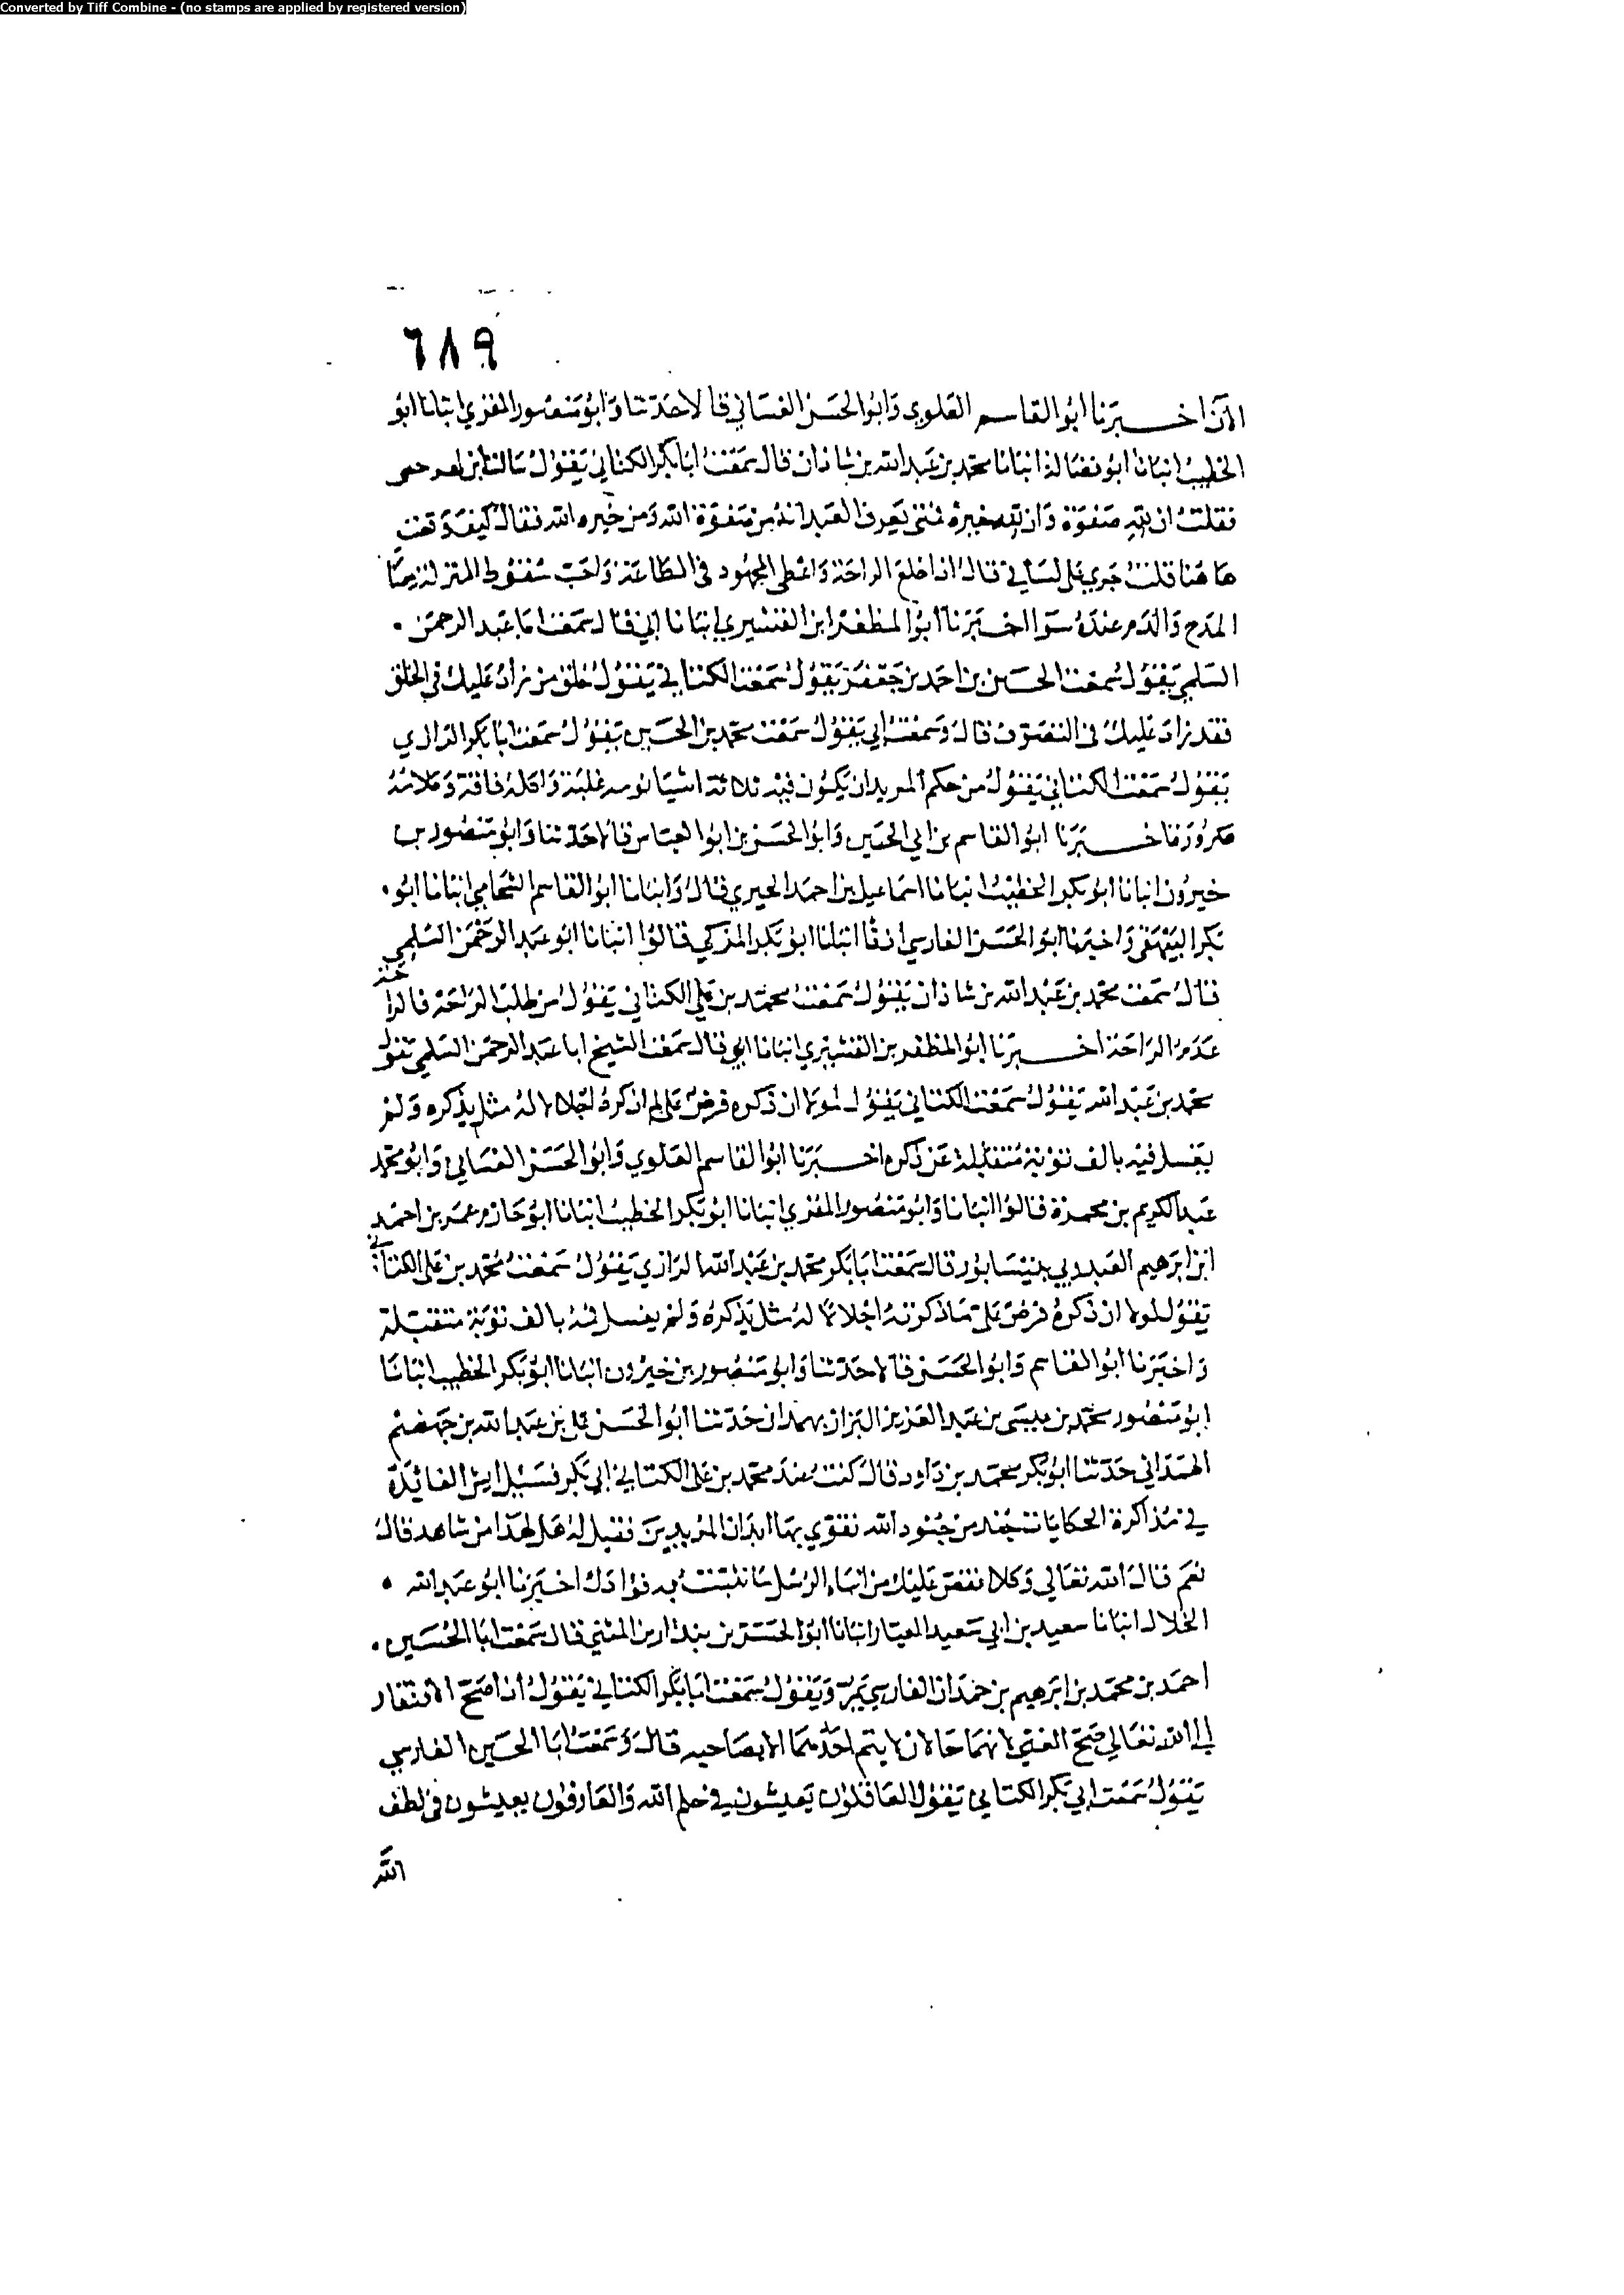 Converted by Tiff Combine - (no stamps are applied by registered version)
٦٨٩
الآن اخبرنا ابو القاسم العلوي وابو الحسن الغساني قالا حدثنا وابو منصور المقري انبانا ابو
الخطيب انبانا ابو نعيم انبانا محمد بن عبد الله بن شاذان قال سمعت ابا بكر الكتاني يقول سالت ابن
فقلت ان لله صفوة وان لله خيرة فمتى يعرف العبد انه من صفوة الله ومن خيرة الله فقال كيف وقعت
هاهنا قلت جري على لساني قال اذا خلع الراحة واعطى المجهود في الطاعة واحب سقوط المنزلة
المدح والذم عنده سوا اخبرنا ابو المظفر ابن القشيري انبانا ابي قال سمعت ابا عبد الرحمن
السلمي يقول سمعت الحسين بن احمد بن جعفر يقول سمعت الكتاني يقول خلق من زاد عليك في الخلق
فقد زاد عليك في التصوف قال وسمعت ابي يقول سمعت محمد بن الحسين يقول سمعت ابا بكر الرازي
يقول سمعت الكتاني يقول من حكم المريد ان يكون فيه ثلاثة اشيا نومه غلبة واكله فاقة وكلامه
ضرورة اخبرنا ابو القاسم بن ابي الحسين وابو الحسن بن ابو العباس قالا حدثنا وابو منصور بن
خيرون انبانا ابو بكر الخطيب انبانا اسماعيل بن احمد الحيري قال وانبانا ابو القاسم الشحامي انبانا ابو
بكر البيهقي واخبرنا ابو الحسن الفارسي انبانا ابو بكر المزكي قالوا انبانا ابو عبد الرحمن السلمي
قال سمعت محمد بن عبد الله بن شاذان يقول سمعت محمد بن علي الكتاني يقول من طلب الراحة
عدم الراحة اخبرنا ابو المظفر بن القشيري انبانا ابي قال سمعت الشيخ ابا عبد الرحمن السلمي يقول
محمد بن عبد الله يقول سمعت الكتاني يقول لولا ان ذكره فرض علي لم اذكره اجلالا له مثلي يذكره ولم
يغسل فيه بالف توبة متقبلة عن ذكره اخبرنا ابو القاسم العلوي وابو الحسن الغساني وابو محمد
عبد الكريم بن حمزة قالوا انبانا وابو منصور المقري انبانا ابو بكر الخطيب انبانا ابو حازم عمر بن احمد
ابن ابرهيم العبدوي بنيسابور قال سمعت ابا بكر محمد بن عبد الله الرازي يقول سمعت محمد بن علي الكتاني
يقول لولا ان ذكره فرض علي ما ذكرته اجلالا له مثلي يذكره ولم يغسل فمه بالف توبة متقبلة
واخبرنا ابو القاسم وابو الحسن قالا حدثنا وابو منصور بن خيرون انبانا ابو بكر الخطيب انبانا
ابو منصور محمد بن عيسى بن عبد العزيز البزاز بهمذان حدثنا ابو الحسن علي بن عبد الله بن جهضم
الهمداني حدثنا ابو بكر محمد بن داود قال كنت عند محمد بن علي الكتاني ابي بكر فسيل ايش الفائدة
في مذاكرة الحكايات جند من جنود الله تقوي بها ابدان المريدين فقيل له هل لهذا من شاهد قال
نعم قال الله تعالى وكلا نقص عليك من انباء الرسل ما نثبت به فوادك اخبرنا ابو عبد الله
الخلال انبانا سعيد بن ابي سعيد العيار انبانا ابو الحسن بن بندار بن المثنى قال سمعت ابا الحسين
احمد بن محمد بن ابرهيم بن حمدان الفارسي يقول سمعت ابا بكر الكتاني يقول اذا صح الافتقار
الى الله تعالى صح الغنى لانهما حالان لا يتم احدهما الا بصاحبه قال وسمعت ابا الحسين الفارسي
يقول سمعت ابي بكر الكتاني يقول الغافلون يعيشون في حلم الله والعارفون يعيشون في لطف
الله